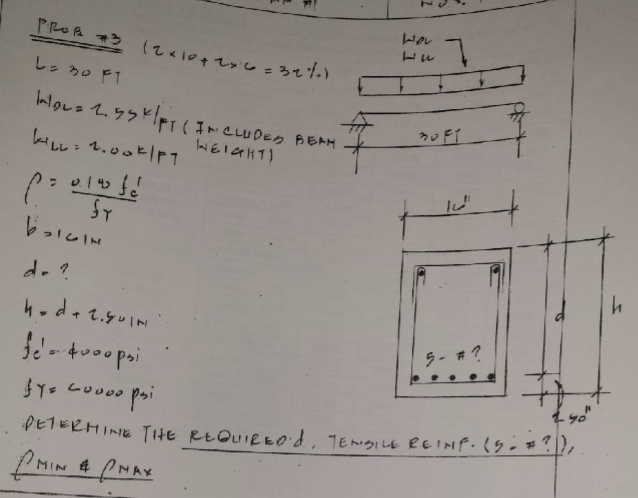 PROB #3 (2x10 + 2x6 = 32%)
L = 30 FT
WDL = 2.55K/FT (INCLUDED BEAM WEIGHT)
WLL = 2.00K/FT
ρ = 0.180 fc' / fy
b = 16 IN
d = ?
h = d + 2.50 IN
fc' = 4000 psi
fy = 60000 psi
DETERMINE THE REQUIRED d, TENSILE REINF. (5 - #?),
ρMIN & ρMAX
WDL
WLL
30 FT
16"
5 - #?
d
h
2.50"